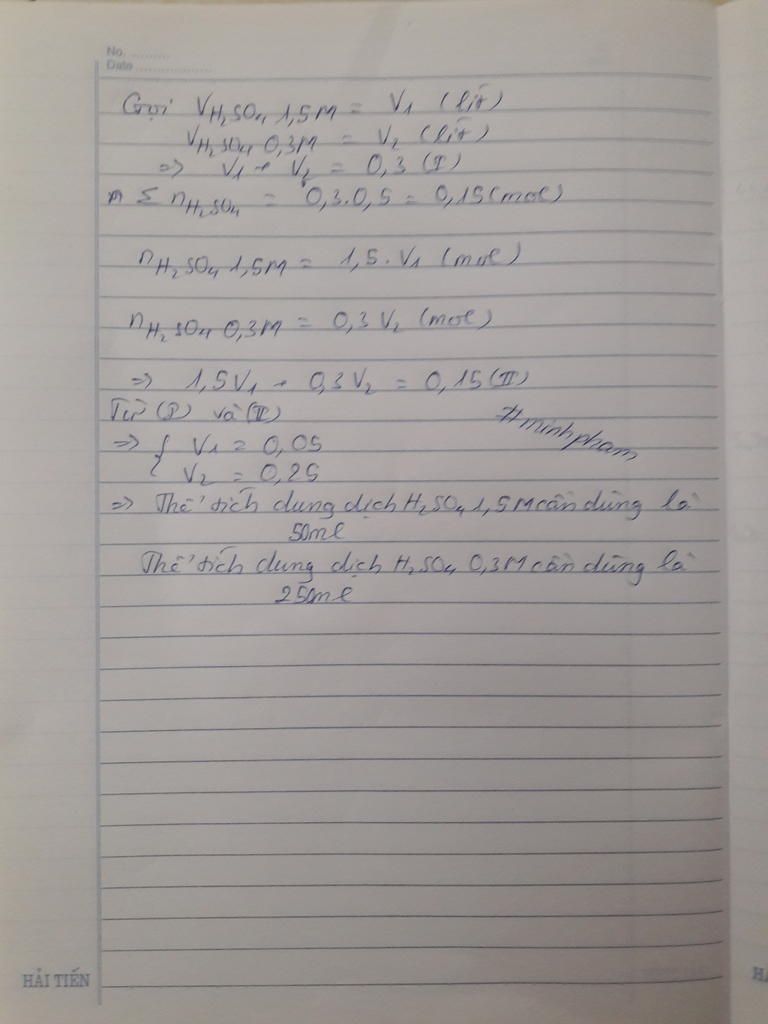 No. ..........
Date ......................
Gọi V H₂SO₄ 1,5M = V1 (lít)
V H₂SO₄ 0,3M = V2 (lít)
=> V1 + V2 = 0,3 (I)
Σ nH₂SO₄ = 0,3.0,5 = 0,15(mol)
nH₂SO₄ 1,5M = 1,5.V1 (mol)
nH₂SO₄ 0,3M = 0,3V2 (mol)
=> 1,5V1 + 0,3V2 = 0,15(II)
Từ (I) và (II)
#minhpham
=> { V1 = 0,05
V2 = 0,25
=> Thể tích dung dịch H₂SO₄ 1,5M cần dùng là
50ml
Thể tích dung dịch H₂SO₄ 0,3M cần dùng là
250ml
HẢI TIẾN